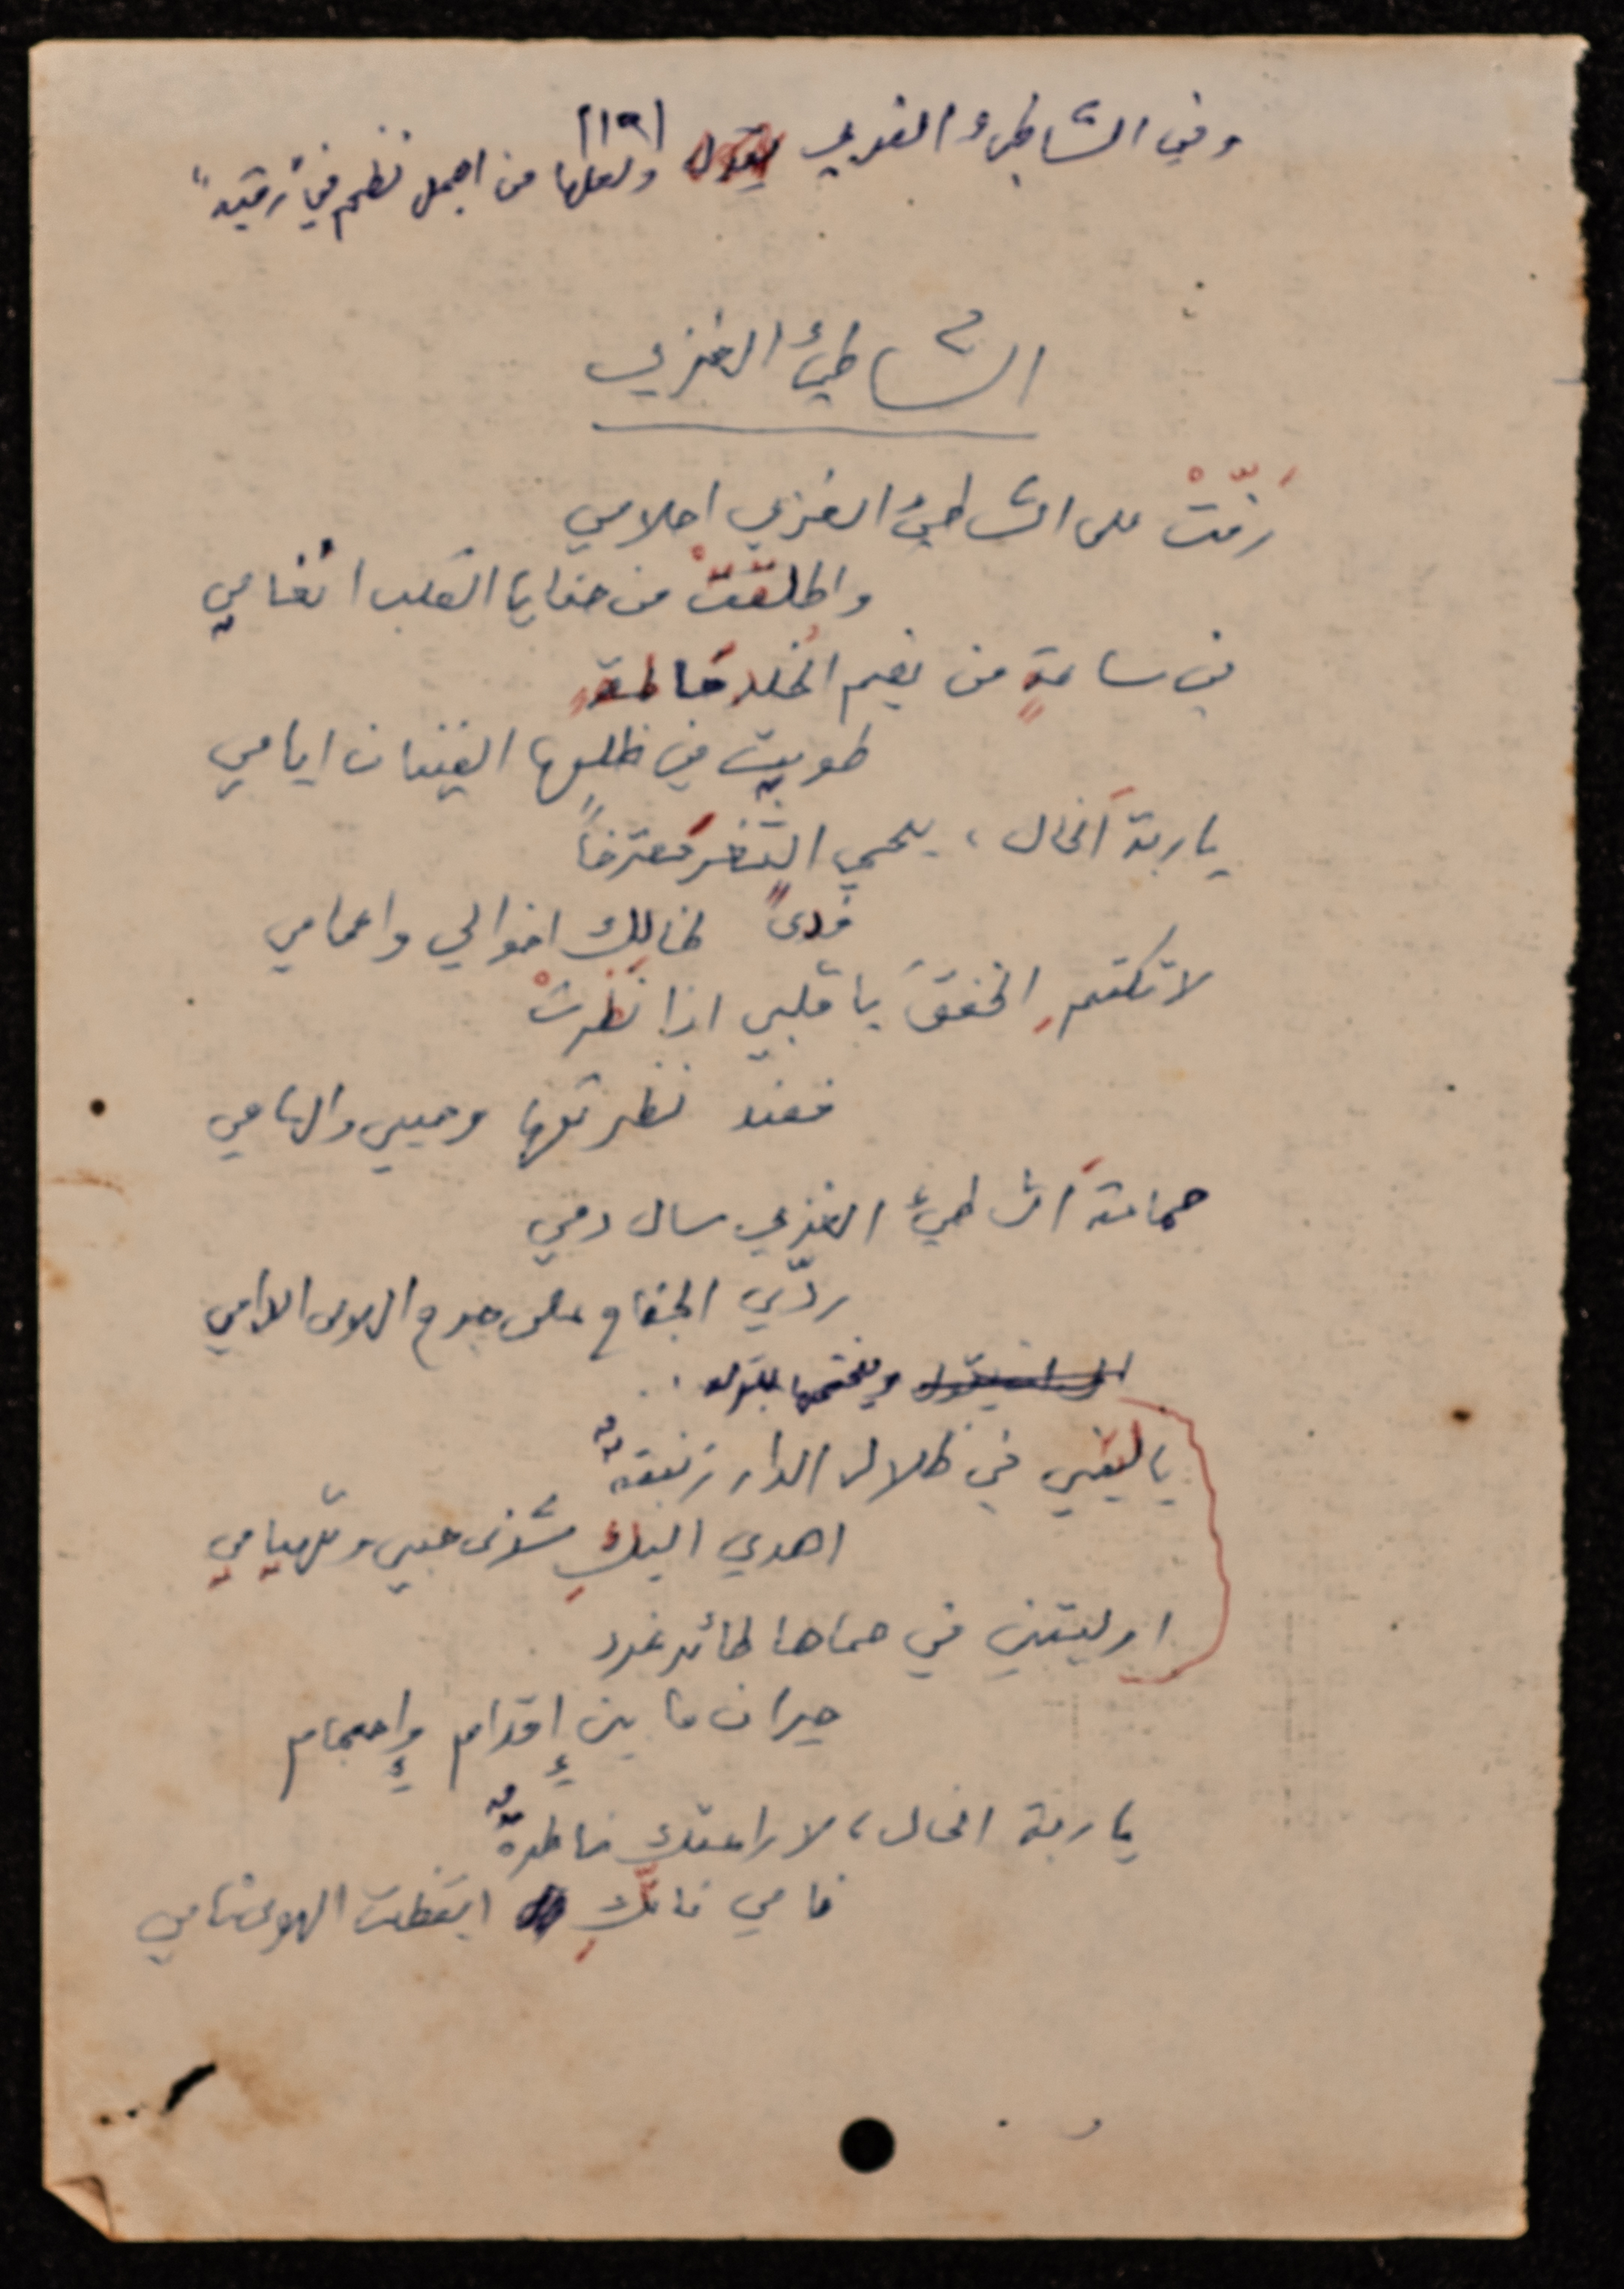 (١٩)
وفي الشاطئ الغزي ولعلها من اجمل نظم في "رقته"
الشاطئ الغزي
رفّتْ على الشاطئ الغزي احلامي
واطلقتْ من حنايا القلب انغامي
في ساعةٍ من نعيم الخُلد خاطفة
طويت في ظلها الفينان ايامي
يا ربةَ الخال، يحمي الثغر مَعترفاً
فدىً لخالك اخوالي واعمامي
لا تكتمِ الخفقَ يا قلبي اذا نَظَرتْ
فعند نظرتها وحيي والهامي
حمامةَ الشاطئ الغزي سال دمي
ردّي الجناح على جرح الهوى الدامي
ويختمها بقوله :
يا ليتني في ظلال الدار زنبقةٌ
اهدي اليكِ شذى حبي وتهيامي
او ليتني في حماها طائر غرد
حيران ما بين إقدام وإحجام
يا ربة الخال، لا راعتك خاطرةٌ
نامي فانّكِ ايقظت الهوى نامي